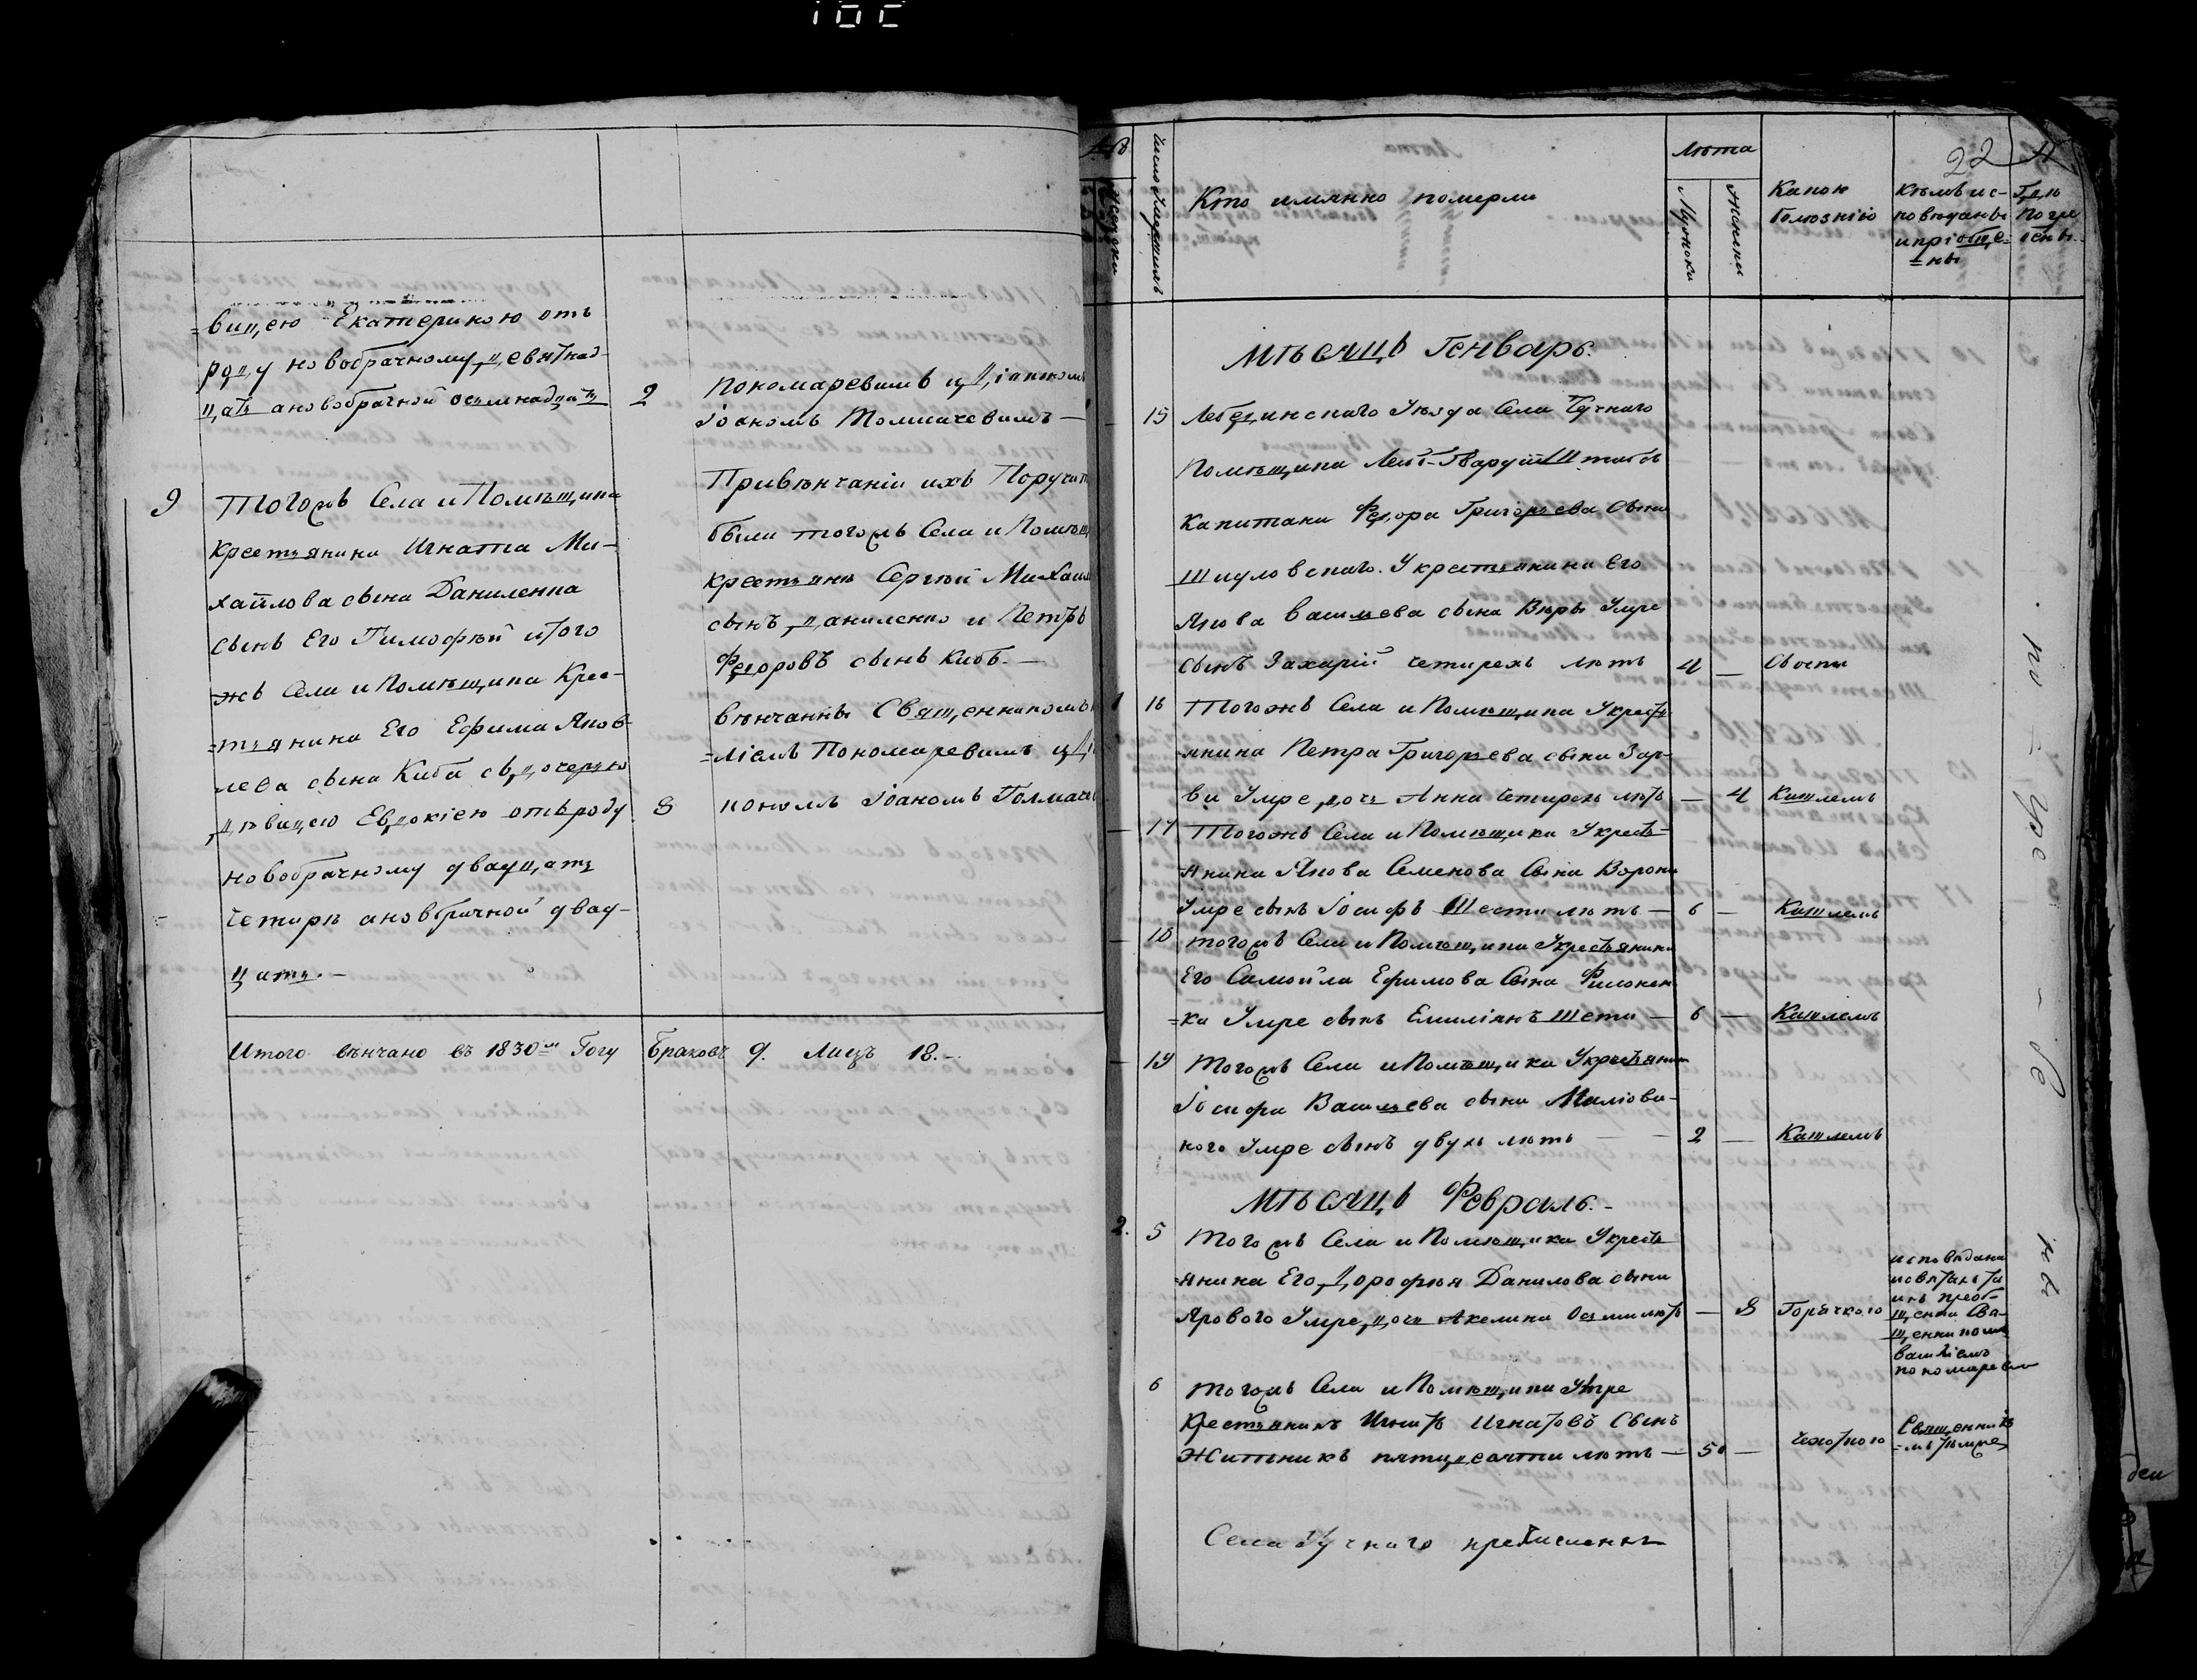 =вицею Екатериною отъ
роду новобрачному девятнад-
цать а новобрачной осемнадцать
2
Пономаревимъ и Діакономъ
Іоаномъ Толмачевимъ —
9
Тогожъ Села и Помѣщика
Крестьянина Игната Ми-
хайлова сына Даниленка
сынъ Его Тимофѣй и того
жъ Села и Помѣщика Крес-
=тьянина Его Ефима Яков
лева сына Киба съ дочерью
дѣвицею Евдокіею отъ роду
новобрачному двадцать
четыри а новобрачной двад-
цать. —
При вѣнчаніи ихъ Поручит
были тогожъ Села и Помѣщ
крестьяне Сергѣй Михаил
сынъ Даниленко и Петръ
Федоровъ сынъ Кибъ. —
вѣнчанны Священникомъ
=ліемъ Пономаревимъ и Ді
8
кономъ Іоаномъ Толмаче
Итого вѣнчано въ 1830м Году Браковъ 9. Лицъ 18. —
22
Женски
Число умершихъ
Кто имянно померли
Лѣта
Мужски
Женски
Какою болѣзнію
Кѣмъ ис-
повѣданы
и пріобще-
=ны
Гдѣ
погре
бены
Мѣсяцъ Генварь.
15 Лебединскаго Уѣзда Села Тучнаго
Помѣщика Лейб-Гвардіи Штабсъ
Капитана Федора Григорьева сына
Шидловскаго. У крестьянина Его
Якова Васильева сына Вѣры Умре
сынъ Захарій четирехъ лѣтъ 4 — Воспы
1 16 Тогожъ Села и Помѣщика У крест
янина Петра Григорьева сына
Умре дочь Анна четирехъ лѣтъ — 4 Кашлемъ
— 17 Тогожъ Села и Помѣщика У крестъ-
янина Якова Семенова Сына Ворони
Умре сынъ Іосифъ Шести лѣтъ — 6 — Кашлемъ
— 18 тогожъ Села и Помѣщика У крестьянина
Его Самойла Ефимова Сына Филонен
=ка Умре сынъ Емиліянъ Шети — 6 — Кашлемъ
— 19 Тогожъ Села и Помѣщика У крестьянина
Іосифа Васильева сына Миліова-
ного Умре сынъ двухъ лѣтъ — — 2 — Кашлемъ
Мѣсяцъ Февраль. —
2. 5 Тогожъ Села и Помѣщика У крестъ
=янина Его Дорофѣя Данилова сына
Ярового Умре дочь Акелина Осми лѣтъ — 8 Горячкою
исповѣдана
преоб-
щенна Свя-
щенникомъ
Василіемъ
Пономаревим
6 тогожъ Села и Помѣщика Умре
Крестьянинъ Игнатъ Игнатовъ Сынъ
Житникъ пятидесяти лѣтъ — 50 — Чехоткою
Священник
Села Тучнаго